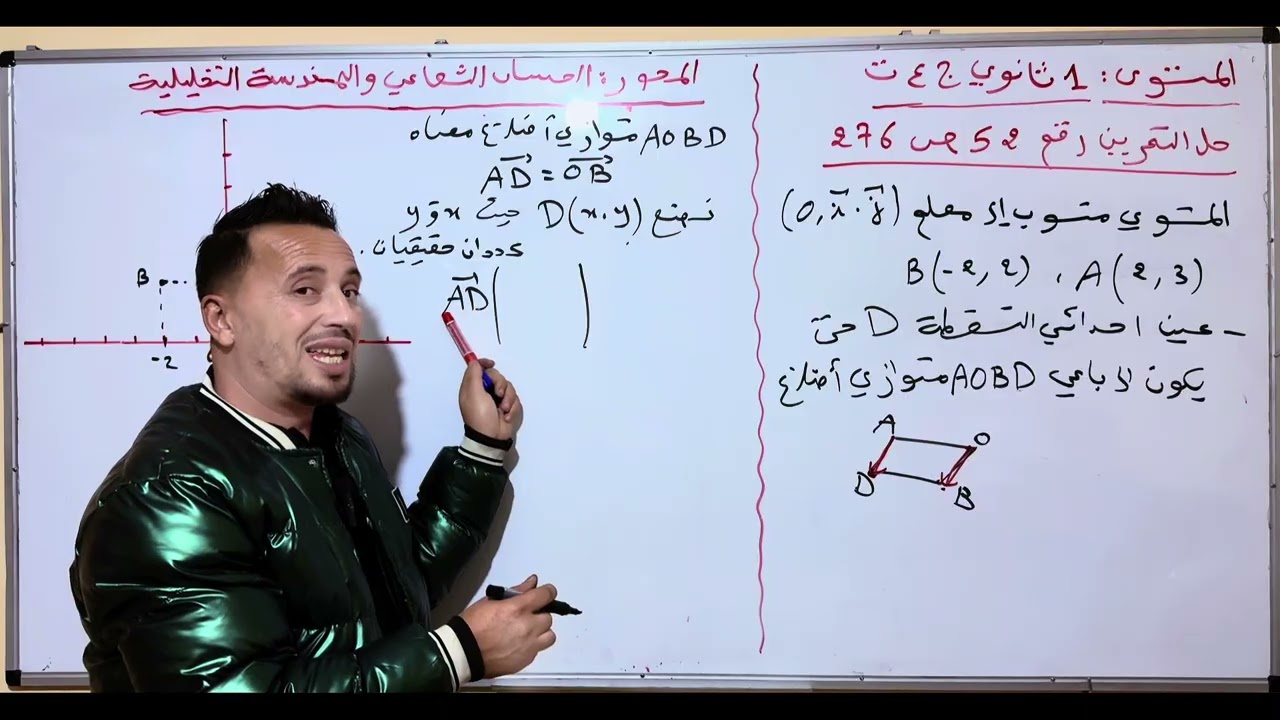 المستوى: 1 ثانوي ج ع ت
حل التمرين رقم 52 ص 276
المستوي منسوب إلى معلم (O, i, j)
A(2, 3) ، B(-2, 2)
- عين احداثي النقطة D حتى
يكون الرباعي AOBD متوازي أضلاع
A
O
D
B
المحور: الحساب الشعاعي والهندسة التحليلية
AOBD متوازي أضلاع معناه
AD = OB
نضع D(x, y) حيث x و y
عددان حقيقيان .
AD( )
B
-2